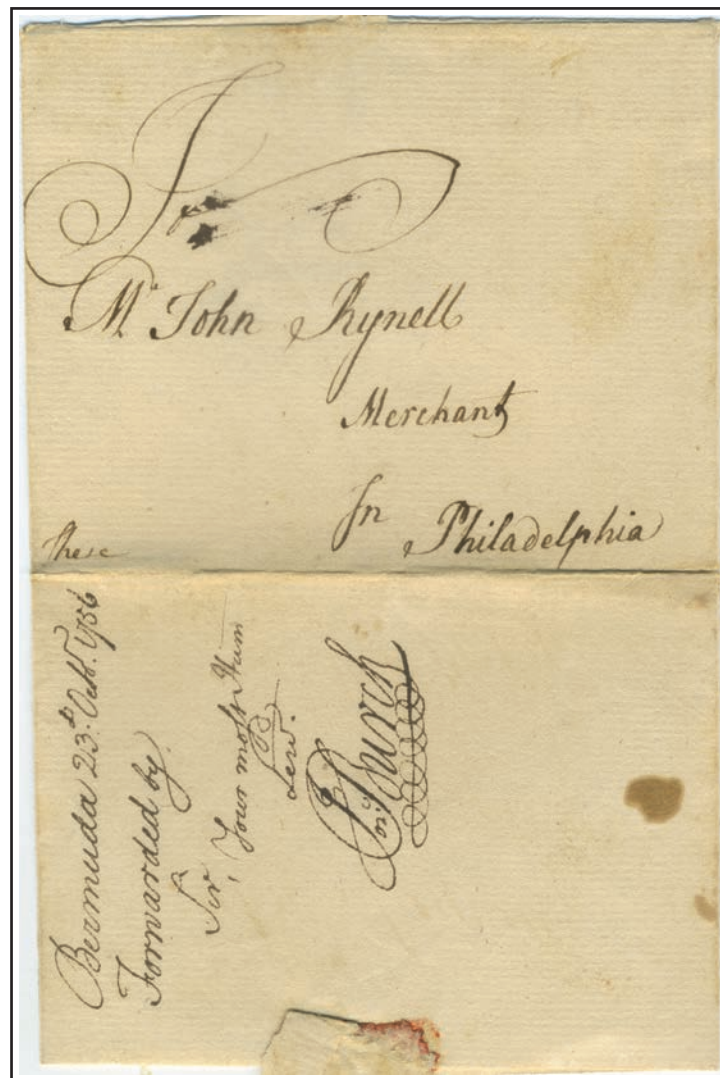 To
Mr John Rynell
Merchant
In Philadelphia
These
Bermuda 23d: Octbr. 1756
Forwarded by
Sir,
Your most Hum
Serv.
Burch